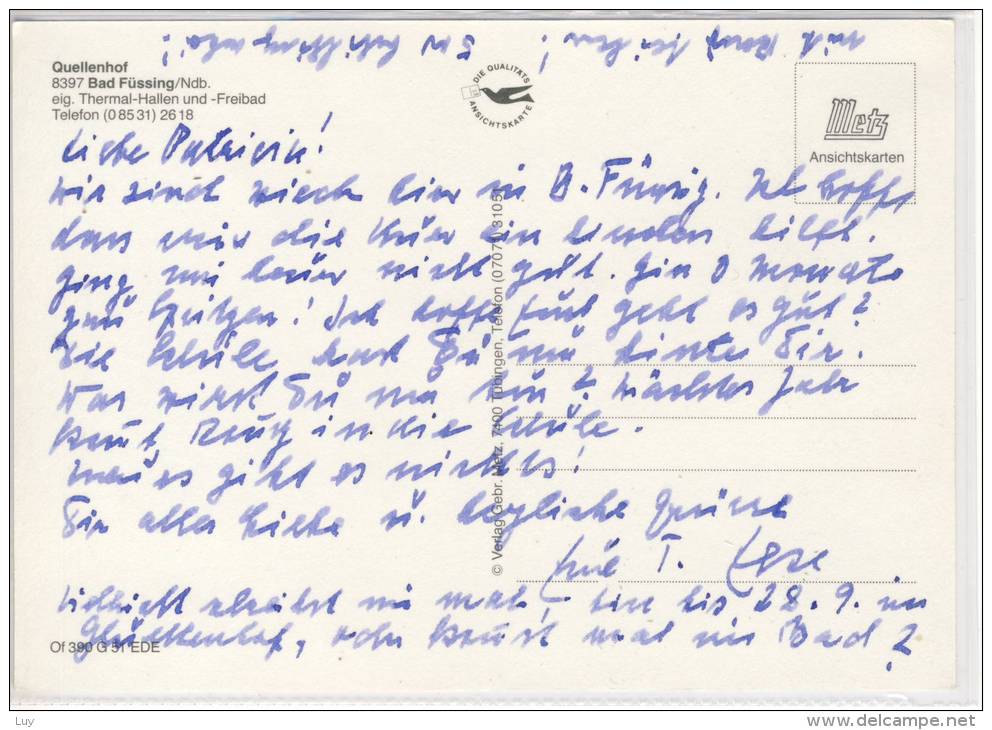 Quellenhof
8397 Bad Füssing/Ndb.
eig. Thermal-Hallen und -Freibad
Telefon (0 85 31) 26 18
DIE QUALITÄTS
ANSICHTSKARTE
Metz
Ansichtskarten
Liebe Patricia!
Wir sind wieder hier in B. Füssig. Ich hoffe,
dass mir die Kur ein bisschen hilft.
ging mir heuer nicht gut. Gin 8 Monate
zum Spritzen! Ich hoffe, Euch geht es gut?
Die Schule hast Du nun hinter Dir.
Was wirst Du nun tun? Nächstes Jahr
in die Schule.
neues gibt es nichts!
Dir alles Liebe u. herzliche Grüsse
Vielleicht schreibst mir mal, bin bis 28. 9. im
Quellenhof, oder kommst mal ins Bad?
© Verlag Gebr. Metz, 7400 Tübingen, Telefon (07071) 31051
Of 390 G 51 EDE
Luy
www.delcampe.net